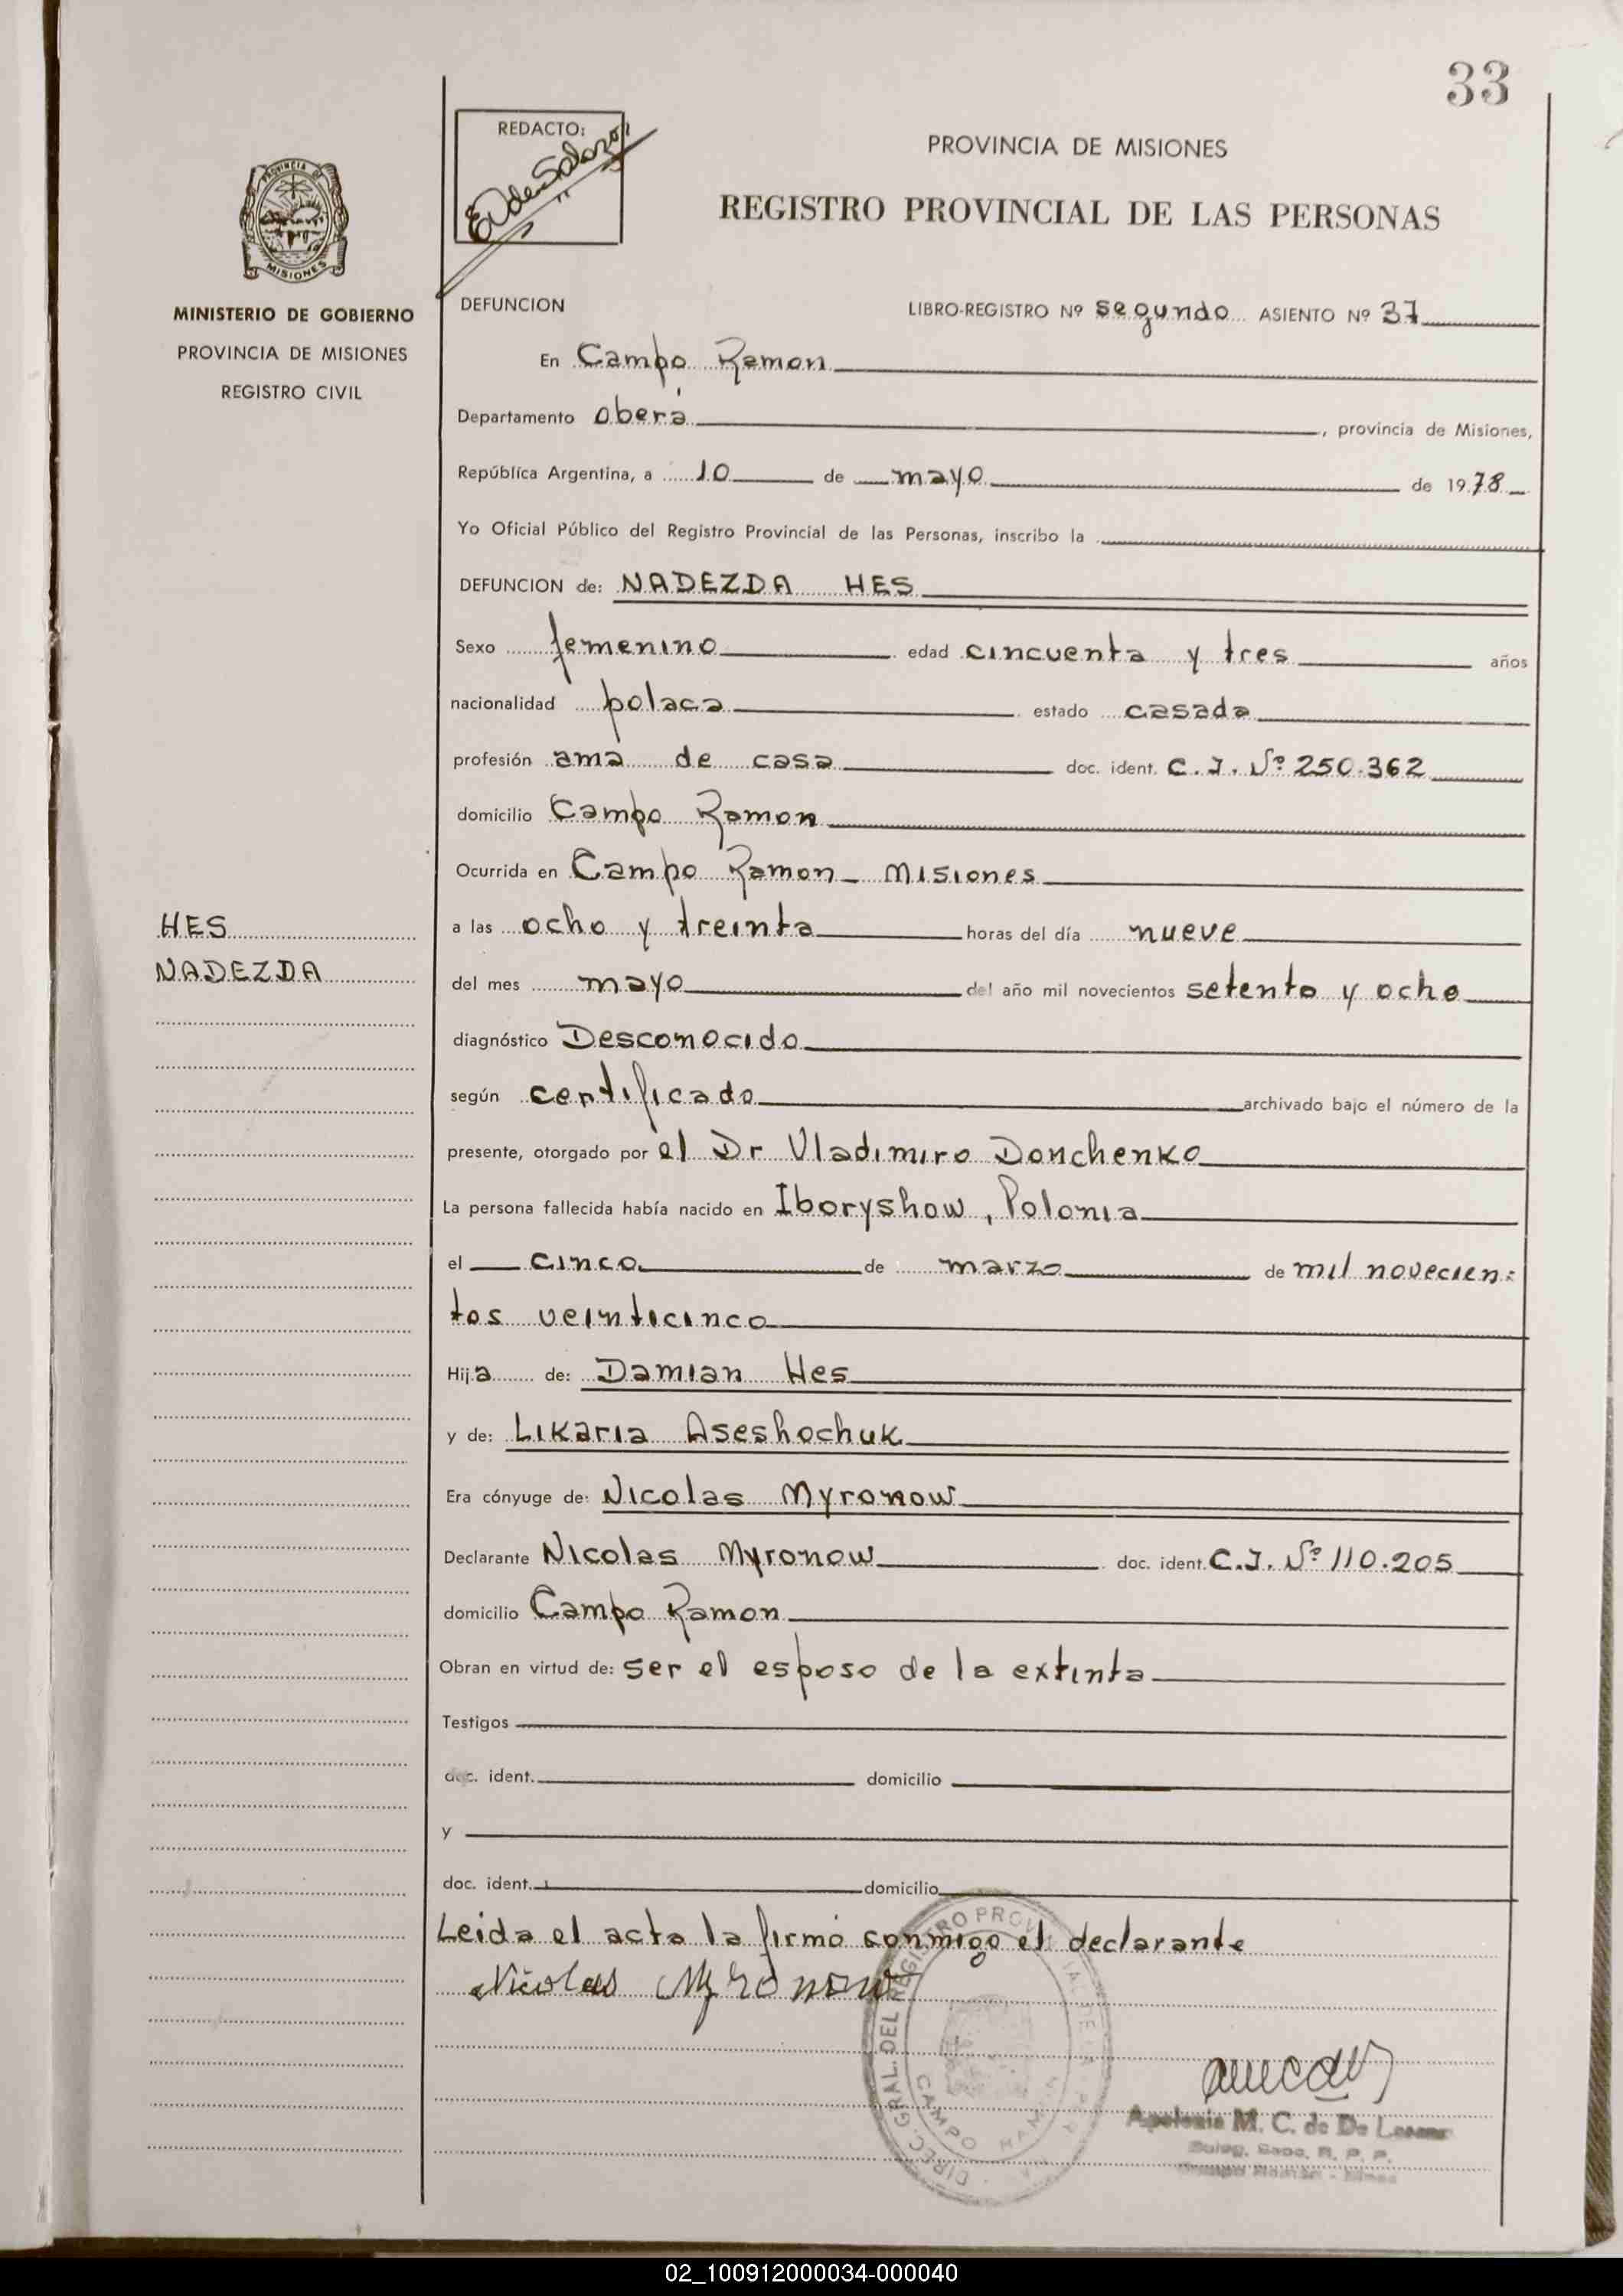 33
REDACTO:
PROVINCIA DE MISIONES
REGISTRO PROVINCIAL DE LAS PERSONAS
PROVINCIA DE
MISIONES
MINISTERIO DE GOBIERNO
PROVINCIA DE MISIONES
REGISTRO CIVIL
DEFUNCION LIBRO-REGISTRO Nº segundo ASIENTO Nº 37
En Campo Ramon
Departamento Oberá, provincia de Misiones,
República Argentina, a 10 de mayo de 1978
Yo Oficial Público del Registro Provincial de las Personas, inscribo la
DEFUNCION de: NADEZDA HES
Sexo femenino edad cincuenta y tres años
nacionalidad polaca estado casada
profesión ama de casa doc. ident. C.I. Nº 250.362
domicilio Campo Ramon
Ocurrida en Campo Ramon - Misiones
HES
NADEZDA
a las ocho y treinta horas del día nueve
del mes mayo del año mil novecientos setenta y ocho
diagnóstico Desconocido
según certificado archivado bajo el número de la
presente, otorgado por el Dr Vladimiro Donchenko
La persona fallecida había nacido en Iboryshow, Polonia
el cinco de marzo de mil novecien=
tos veinticinco
Hija de: Damian Hes
y de: Likaria Aseshochuk
Era cónyuge de: Nicolas Myronow
Declarante Nicolas Myronow doc. ident. C.I. Nº 110.205
domicilio Campo Ramon
Obran en virtud de: ser el esposo de la extinta
Testigos
doc. ident. domicilio
y
doc. ident. domicilio
Leida el acta la firmó conmigo el declarante
Nicolas Myronow
DIREC. GRAL. DEL REGISTRO PROVINCIAL DE LA
CAMPO RAMON
Apolonia M. C. de De
R. P. P.
02_100912000034-000040